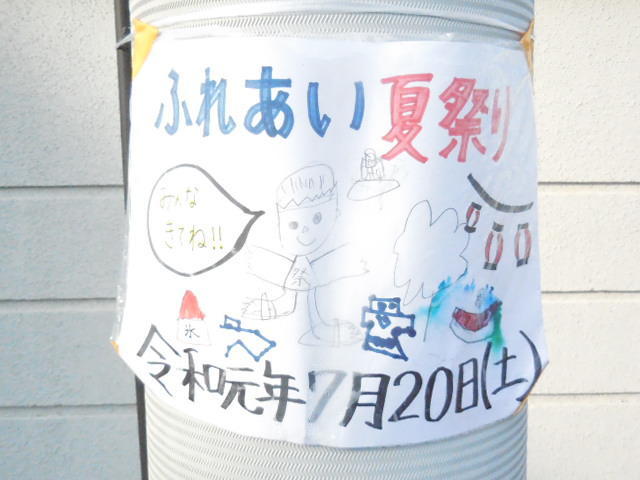 ふれあい夏祭り
みんな
きてね!!
祭
氷
令和元年7月20日(土)